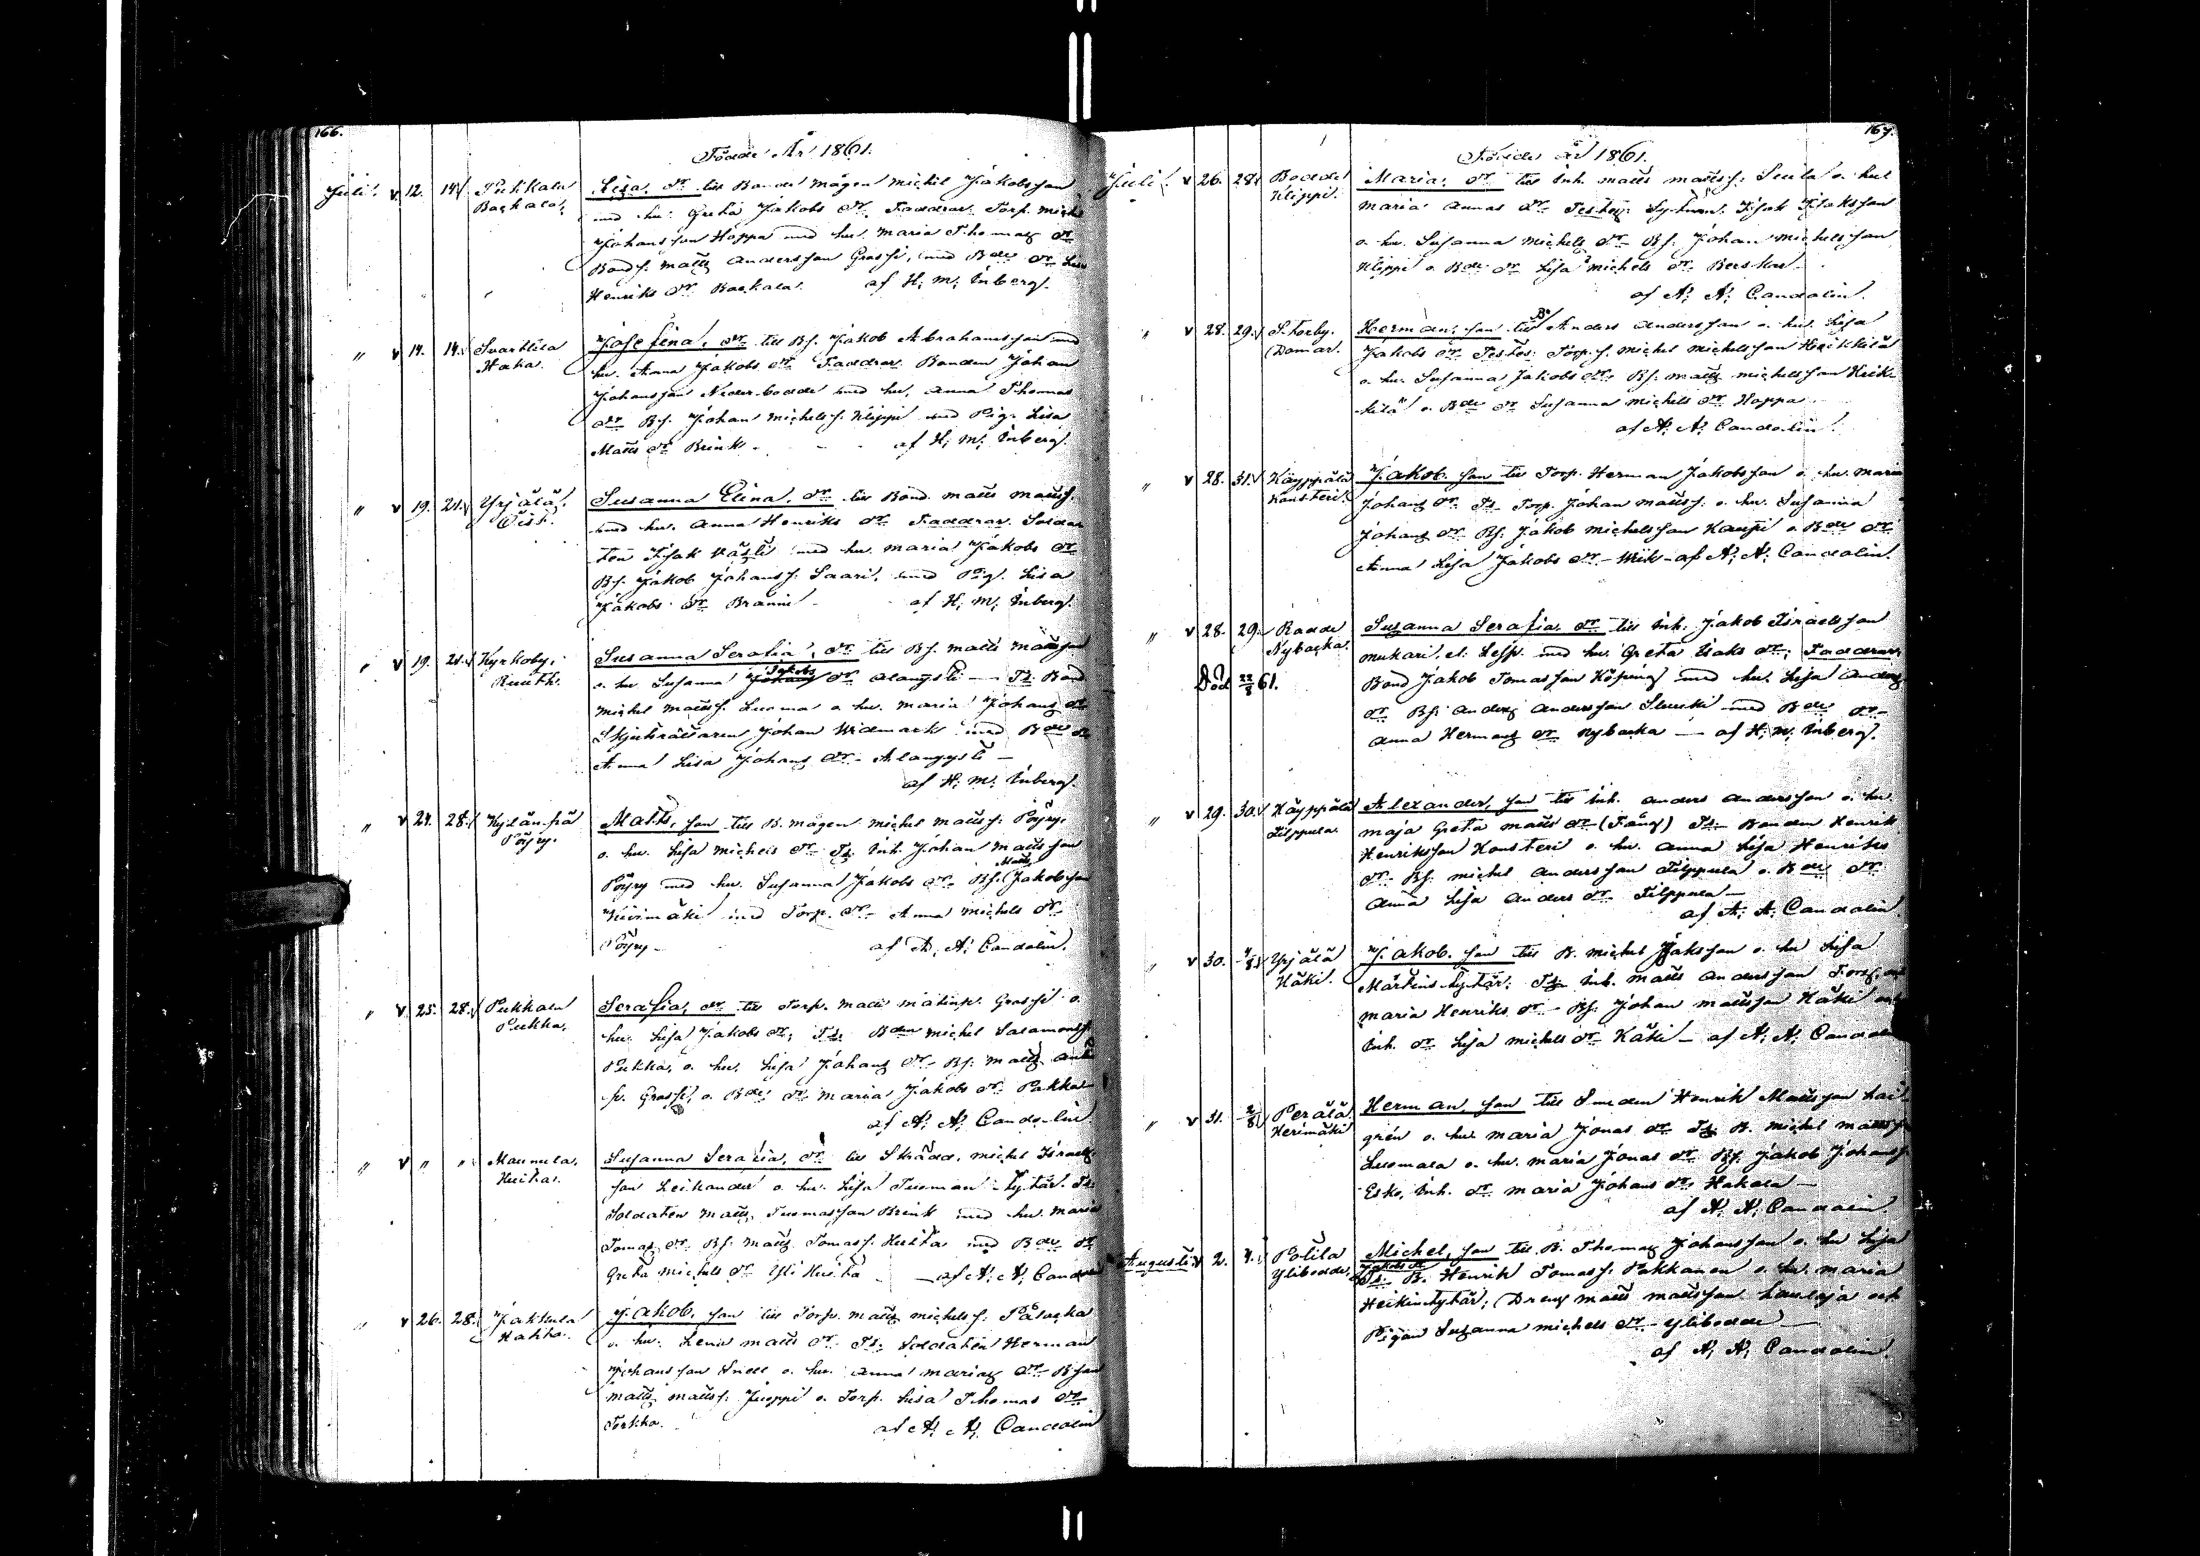 166.
Födde År 1861.
Juli. v 12. 14. Pukkala Backala. Lisa, dr till Bonde mågen Michel Jakobsson
med hu. Greta Jakobs dr. Faddrar Torp. Michel
Johansson Hoppa med hu. Maria Thomas dr
Bonds. Matts Andersson Grassi, med Bde dr Lisa
Henriks dr Backala. af H. M. Inberg.
" v 14. 14. Svartlila Haka. Josefina, dr till Bs. Jakob Abrahamsson med
hu. Anna Jakobs dr Faddrar Bonden Johan
Johansson Neder-bodde med hu. Anna Thomas
dr Bs. Johan Michelss. Klippi med Pig. Lisa
Matts dr Brink - af H. M. Inberg.
" v 19. 21. Yrjälä Susanna Elina, dr till Bond. Matts Mattss.
med hu. Anna Henriks dr Faddrar Solda-
ten Isak med hu. Maria Jakobs dr
Bs. Jakob Johanss. Saari, med Pig. Lisa
Jakobs dr Brännè - af H. M. Inberg.
" v 19. 21. Kyrkoby, Ruuth. Susanna Serafia, dr till Bs. Matts Mattsson
o. hu Susanna Jakobs dr Alangysti - Ts. Bond
Michel Mattss. Luoma o hu. Maria Johans dr
Skjuträttaren Johan Widmark med Bde dr
Anna Lisa Johans dr - Alangysti -
af H. M. Inberg.
" v 24. 28. Kylänpä Pöyry. Matts, son till B. mågen Michel Mattss. Pöyry,
o. hu. Lisa Michels dr Ts. Inh. Johan Mattsson
Pöyry med hu. Susanna Jakobs dr. Bs. Matts Jakobsson
Kivimäki med Torp. dr - Anna Michels dr
Pöyry - af A. A. Candolin.
" v 25. 28. Pukkala Pukka. Serafia, dr till Torp. Matts Grassi o.
hu. Lisa Jakobs dr, Ts. Bden Michel Salamonss
Pukka, o. hu. Lisa Johans dr - Bs. Matts
Grassi, o. Bde dr Maria Jakobs dr Pukka
af A. A. Candolin
" v " " Maunula, Huita. Susanna Serafia, dr till Skrädd. Michel Israels
son Leikander o. hu. Lisa Tuoman-tytär. Ts.
Soldaten Matts Tuomasson Brink med hu. Maria
Tomas dr. Bs. Matts Tomass. Huita med Bde dr
Greta Michels dr Yli Huita - af A. A. Candolin
" v 26. 28. Jakkula Hakka. Jakob, son till Torp. Matts Michelss.
o. hu. Lena Matts dr Ts. Soldaten Herman
Johansson Snell o. hu. Anna Marias dr Bson
Matts Mattss. Juoppi o. Torp. Lisa Thomas dr
Torkko. af A. A. Candolin
167.
Födde år 1861.
Juli. v 26. 28. Bodde Klippi. Maria, dr till Inh. Matts Mattss. o. hu
Maria Annas dr Isak Isaksson
o. hu. Susanna Michels dr - Bs. Johan Michelsson
Klippi o. Bde dr Lisa Michels dr
af A. A. Candolin.
" v 28. 29. Storby. Domar. Herman, son till Bs Anders Andersson o. hu. Lisa
Jakobs dr Torp.s. Michel Michelsson Heikkilä
o. hu. Susanna Jakobs dr, Bs. Matts Michelsson Heik-
kilä o. Bde dr Susanna Michels dr Hoppa
af A. A. Candolin.
" v 28. 31. Käyppälä Konsteri. Jakob, son till Torp. Herman Jakobsson o. hu. Maria
Johans dr Ts. Torp. Johan Mattss. o. hu. Susanna
Johans dr Bs. Jakob Michelsson Kauppi o. Bde dr
Anna Lisa Jakobs dr - Wiik - af A. A. Candolin.
" v 28. 29. Bodde Nybacka. Susanna Serafia, dr till Inh. Jakob Israelsson
Mukari, med hu. Greta Isaks dr; Faddrar,
Död 22/8 61. Bond Jakob Tomasson Köping med hu. Lisa Anders
dr Bs. Anders Andersson med Bde dr -
Anna Hermans dr Nybacka - af H. M. Inberg.
" v 29. 30. Käyppälä Filppula. Alexander, son till Inh. Anders Andersson o. hu.
Maja Greta Matts dr - Ts. Bonden Henrik
Henriksson Konsteri o. hu. Anna Lisa Henriks
dr - Bs. Michel Andersson Filppula o. Bde dr
Anna Lisa Anders dr Filppula -
af A. A. Candolin.
" v 30. 4/8 Yrjälä Käki. Jakob, son till B. Michel o. hu Lisa
Märtins-tytär; Ts. Inh. Matts Andersson
Maria Henriks dr - Bs. Johan Mattsson Käki
Inh. dr Lisa Michels dr Käki - af A. A. Candolin
" v 31. 2/8 Perälä Kerimäki Herman, son till Smeden Henrik Mattsson
grén o. hu. Maria Jonas dr Ts. B. Michel Mattss
Luomala o. hu. Maria Jonas dr Bs. Jakob Johanss
Esko, Inh. dr Maria Johans dr Hakala -
af A. A. Candolin
Augusti v 2. 4. Potila Ylibodde, Michel, son till B. Thomas Johansson o. hu Lisa
Jakobs dr Ts. B. Henrik Tomass. Pakkanen o. hu. Maria
Heikintytär; Dreng Matts Mattsson och
Pigan Susanna Michels dr - Ylibodde -
af A. A. Candolin.